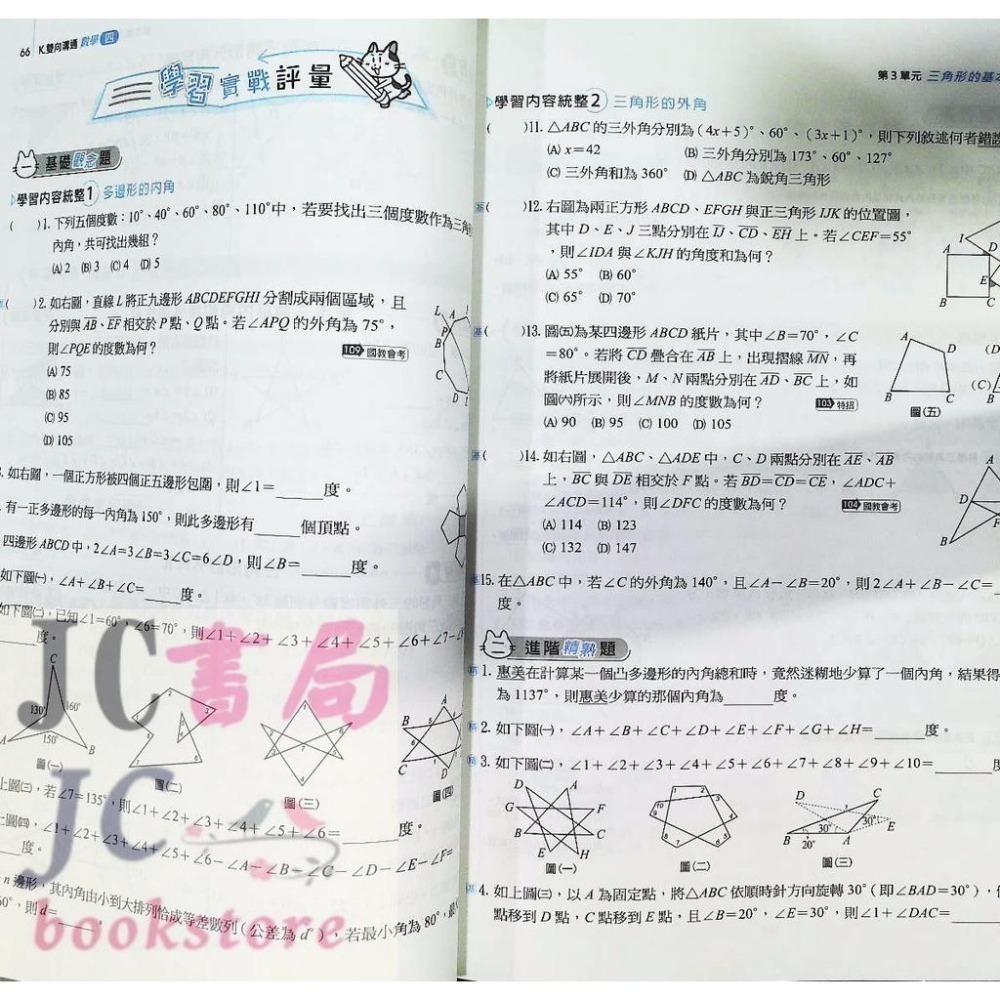 66 K.雙向溝通 數學 四
學習實戰評量
基礎觀念題
學習內容統整1 多邊形的內角
( )1. 下列五個度數：10°、40°、60°、80°、110°中，若要找出三個度數作為三角
內角，共可找出幾組？
(A) 2 (B) 3 (C) 4 (D) 5
( )2. 如右圖，直線 L 將正九邊形 ABCDEFGHI 分割成兩個區域，且
分別與 AB、EF 相交於 P 點、Q 點。若∠APQ 的外角為 75°，
則∠PQE 的度數為何？ 109 國教會考
(A) 75
(B) 85
(C) 95
(D) 105
L A
P
B
C
D
. 如右圖，一個正方形被四個正五邊形包圍，則∠1=______度。
. 有一正多邊形的每一內角為 150°，則此多邊形有______個頂點。
四邊形 ABCD 中，2∠A=3∠B=3∠C=6∠D，則∠B=______度。
如下圖㈠，∠A+∠B+∠C=______度。
如下圖㈡，已知∠1=60°、∠6=70°，則∠1+∠2+∠3+∠4+∠5+∠6+∠7-∠
______度。
C
130° 160°
150°
A B
圖㈠
圖㈡
圖㈢
圖㈣
上圖㈢，若∠7=135°，則∠1+∠2+∠3+∠4+∠5+∠6=______度。
上圖㈣，∠1+∠2+∠3+∠4+∠5+∠6-∠A-∠B-∠C-∠D-∠E-∠F=
______度。
n 邊形，其內角由小到大排列恰成等差數列(公差為 d°)，若最小角為 80°，最
60°，則 d=______。
JC書局
JC
bookstore
第 3 單元 三角形的基本
學習內容統整2 三角形的外角
( )11. △ABC 的三外角分別為(4x+5)°、60°、(3x+1)°，則下列敘述何者錯誤
(A) x=42 (B) 三外角分別為 173°、60°、127°
(C) 三外角和為 360° (D) △ABC 為銳角三角形
( )12. 右圖為兩正方形 ABCD、EFGH 與正三角形 IJK 的位置圖，
其中 D、E、J 三點分別在 IJ、CD、EH 上。若∠CEF=55°
，則∠IDA 與∠KJH 的角度和為何？
(A) 55° (B) 60°
(C) 65° (D) 70°
I
A D
E
B C
( )13. 圖㈤為某四邊形 ABCD 紙片，其中∠B=70°，∠C
=80°。若將 CD 疊合在 AB 上，出現摺線 MN，再
將紙片展開後，M、N 兩點分別在 AD、BC 上，如
圖㈥所示，則∠MNB 的度數為何？ 103 特招
(A) 90 (B) 95 (C) 100 (D) 105
A D (D
B C (C) B
圖㈤
( )14. 如右圖，△ABC、△ADE 中，C、D 兩點分別在 AE、AB
上，BC 與 DE 相交於 F 點。若 BD=CD=CE，∠ADC+
∠ACD=114°，則∠DFC 的度數為何？ 104 國教會考
(A) 114 (B) 123
(C) 132 (D) 147
A
D
B
15. 在△ABC 中，若∠C 的外角為 140°，且∠A-∠B=20°，則 2∠A+∠B-∠C=
度。
進階精熟題
1. 惠美在計算某一個凸多邊形的內角總和時，竟然迷糊地少算了一個內角，結果得
為 1137°，則惠美少算的那個內角為______度。
2. 如下圖㈠，∠A+∠B+∠C+∠D+∠E+∠F+∠G+∠H=______度。
3. 如下圖㈡，∠1+∠2+∠3+∠4+∠5+∠6+∠7+∠8+∠9+∠10=______度
D A
G F
B C
E H
圖㈠
圖㈡
D C
30° 30° E
B 20° A
圖㈢
4. 如上圖㈢，以 A 為固定點，將△ABC 依順時針方向旋轉 30°(即∠BAD=30°)，
點移到 D 點，C 點移到 E 點，且∠B=20°，∠E=30°，則∠1+∠DAC=______